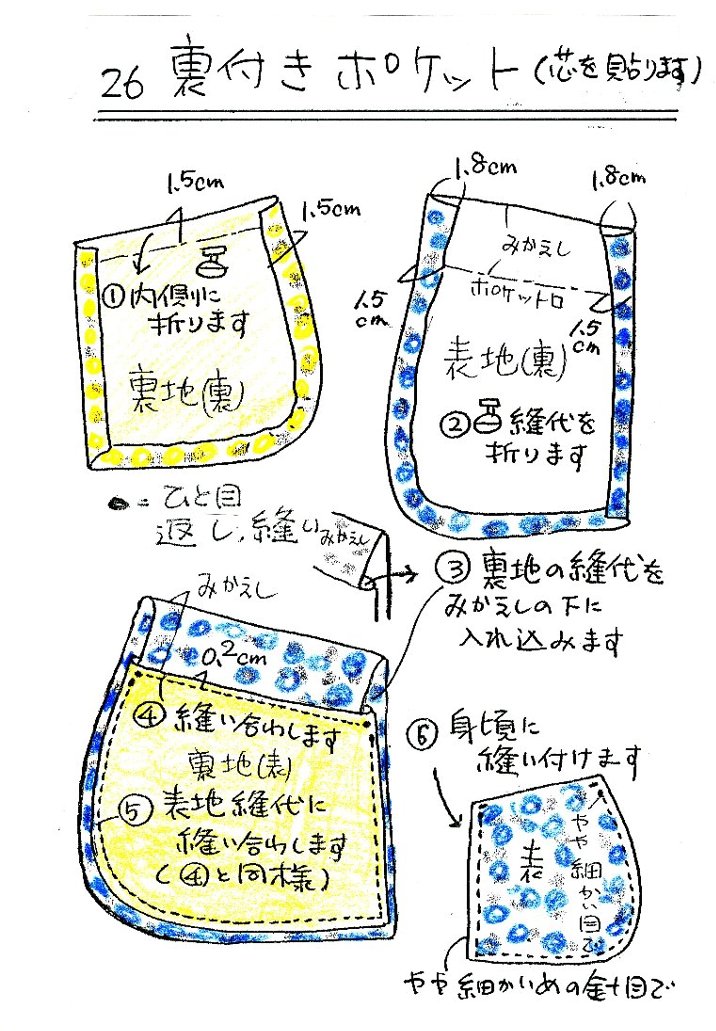 26 裏付きポケット(芯を貼ります)
1.5cm
1.5cm
①内側に
折ります
裏地(裏)
1.8cm
1.8cm
みかえし
ポケット口
1.5
cm
1.5
cm
表地(裏)
②縫代を
折ります
●=ひと目
返し縫い
みかえし
③裏地の縫代を
みかえしの下に
入れ込みます
みかえし
0.2cm
④縫い合わします
裏地(表)
⑤表地縫代に
縫い合わします
(④と同様)
⑥身頃に
縫い付けます
表
やや細かい目で
やや細かいめの針目で